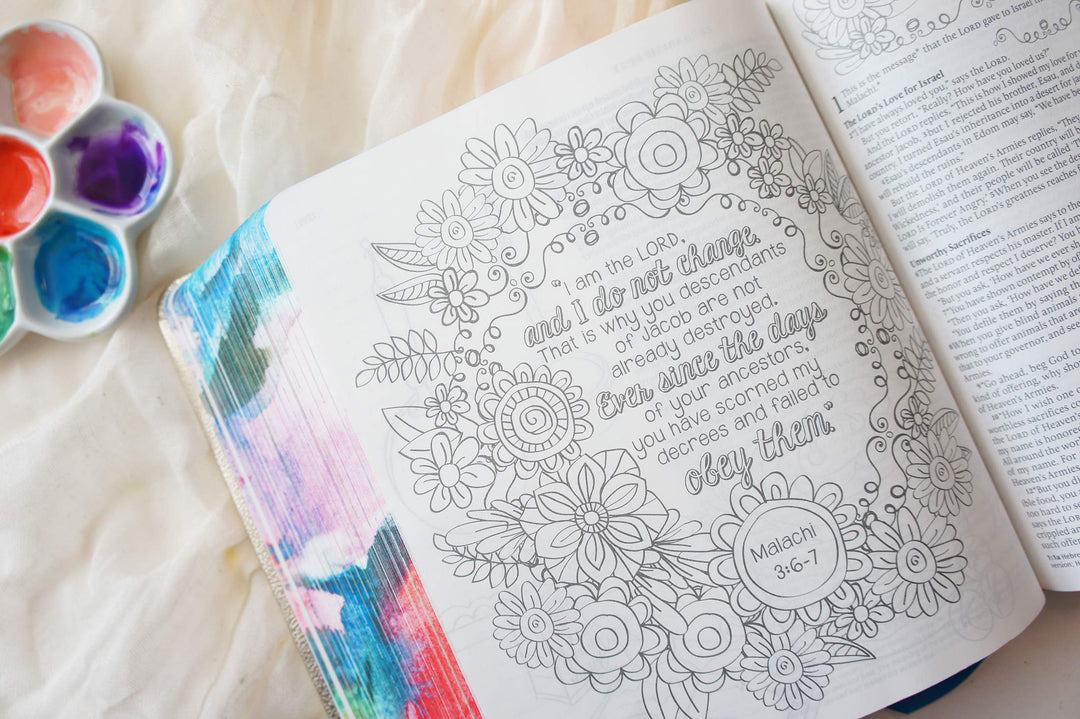 "I am the LORD,
and I do not change.
That is why you descendants
of Jacob are not
already destroyed.
Ever since the days
of your ancestors,
you have scorned my
decrees and failed to
obey them."
Malachi
3:6-7
This is the message* that the LORD gave to Israel
1
Malachi.*
The LORD's Love for Israel
2"I have always loved you," says the LORD.
But you retort, "Really? How have you loved us?"
And the LORD replies, "This is how I showed my love for
ancestor Jacob, 3but I rejected his brother, Esau, and
country. I turned Esau's inheritance into a desert for
4Esau's descendants in Edom may say, "We have
will rebuild the ruins."
But the LORD of Heaven's Armies replies, "They
I will demolish them again. Their country will
Wickedness,' and their people will be called 'The
LORD Is Forever Angry.' 5When you see the
will say, 'Truly, the LORD's greatness reaches
Unworthy Sacrifices
6The LORD of Heaven's Armies says to the
and a servant respects his master. If I am
the honor and respect I deserve? You
"But you ask, 'How have we ever
7"You have shown contempt by
"Then you ask, 'How have we
"You defile them by saying the
8When you give blind animals
wrong to offer animals that are
that to your governor, and see
Armies.
9"Go ahead, beg God to
kind of offering, why
of Heaven's Armies.
10"How I wish one of
worthless sacrifices
the LORD of Heaven's
my name is honored
All around the world
of my name. For
Heaven's Armies.
12"But you
food, you
too hard to
says the LORD
crippled and
such offer
1:1a Hebrew
version,